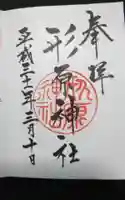 奉拝
形原神社
平成二十一年三月十日